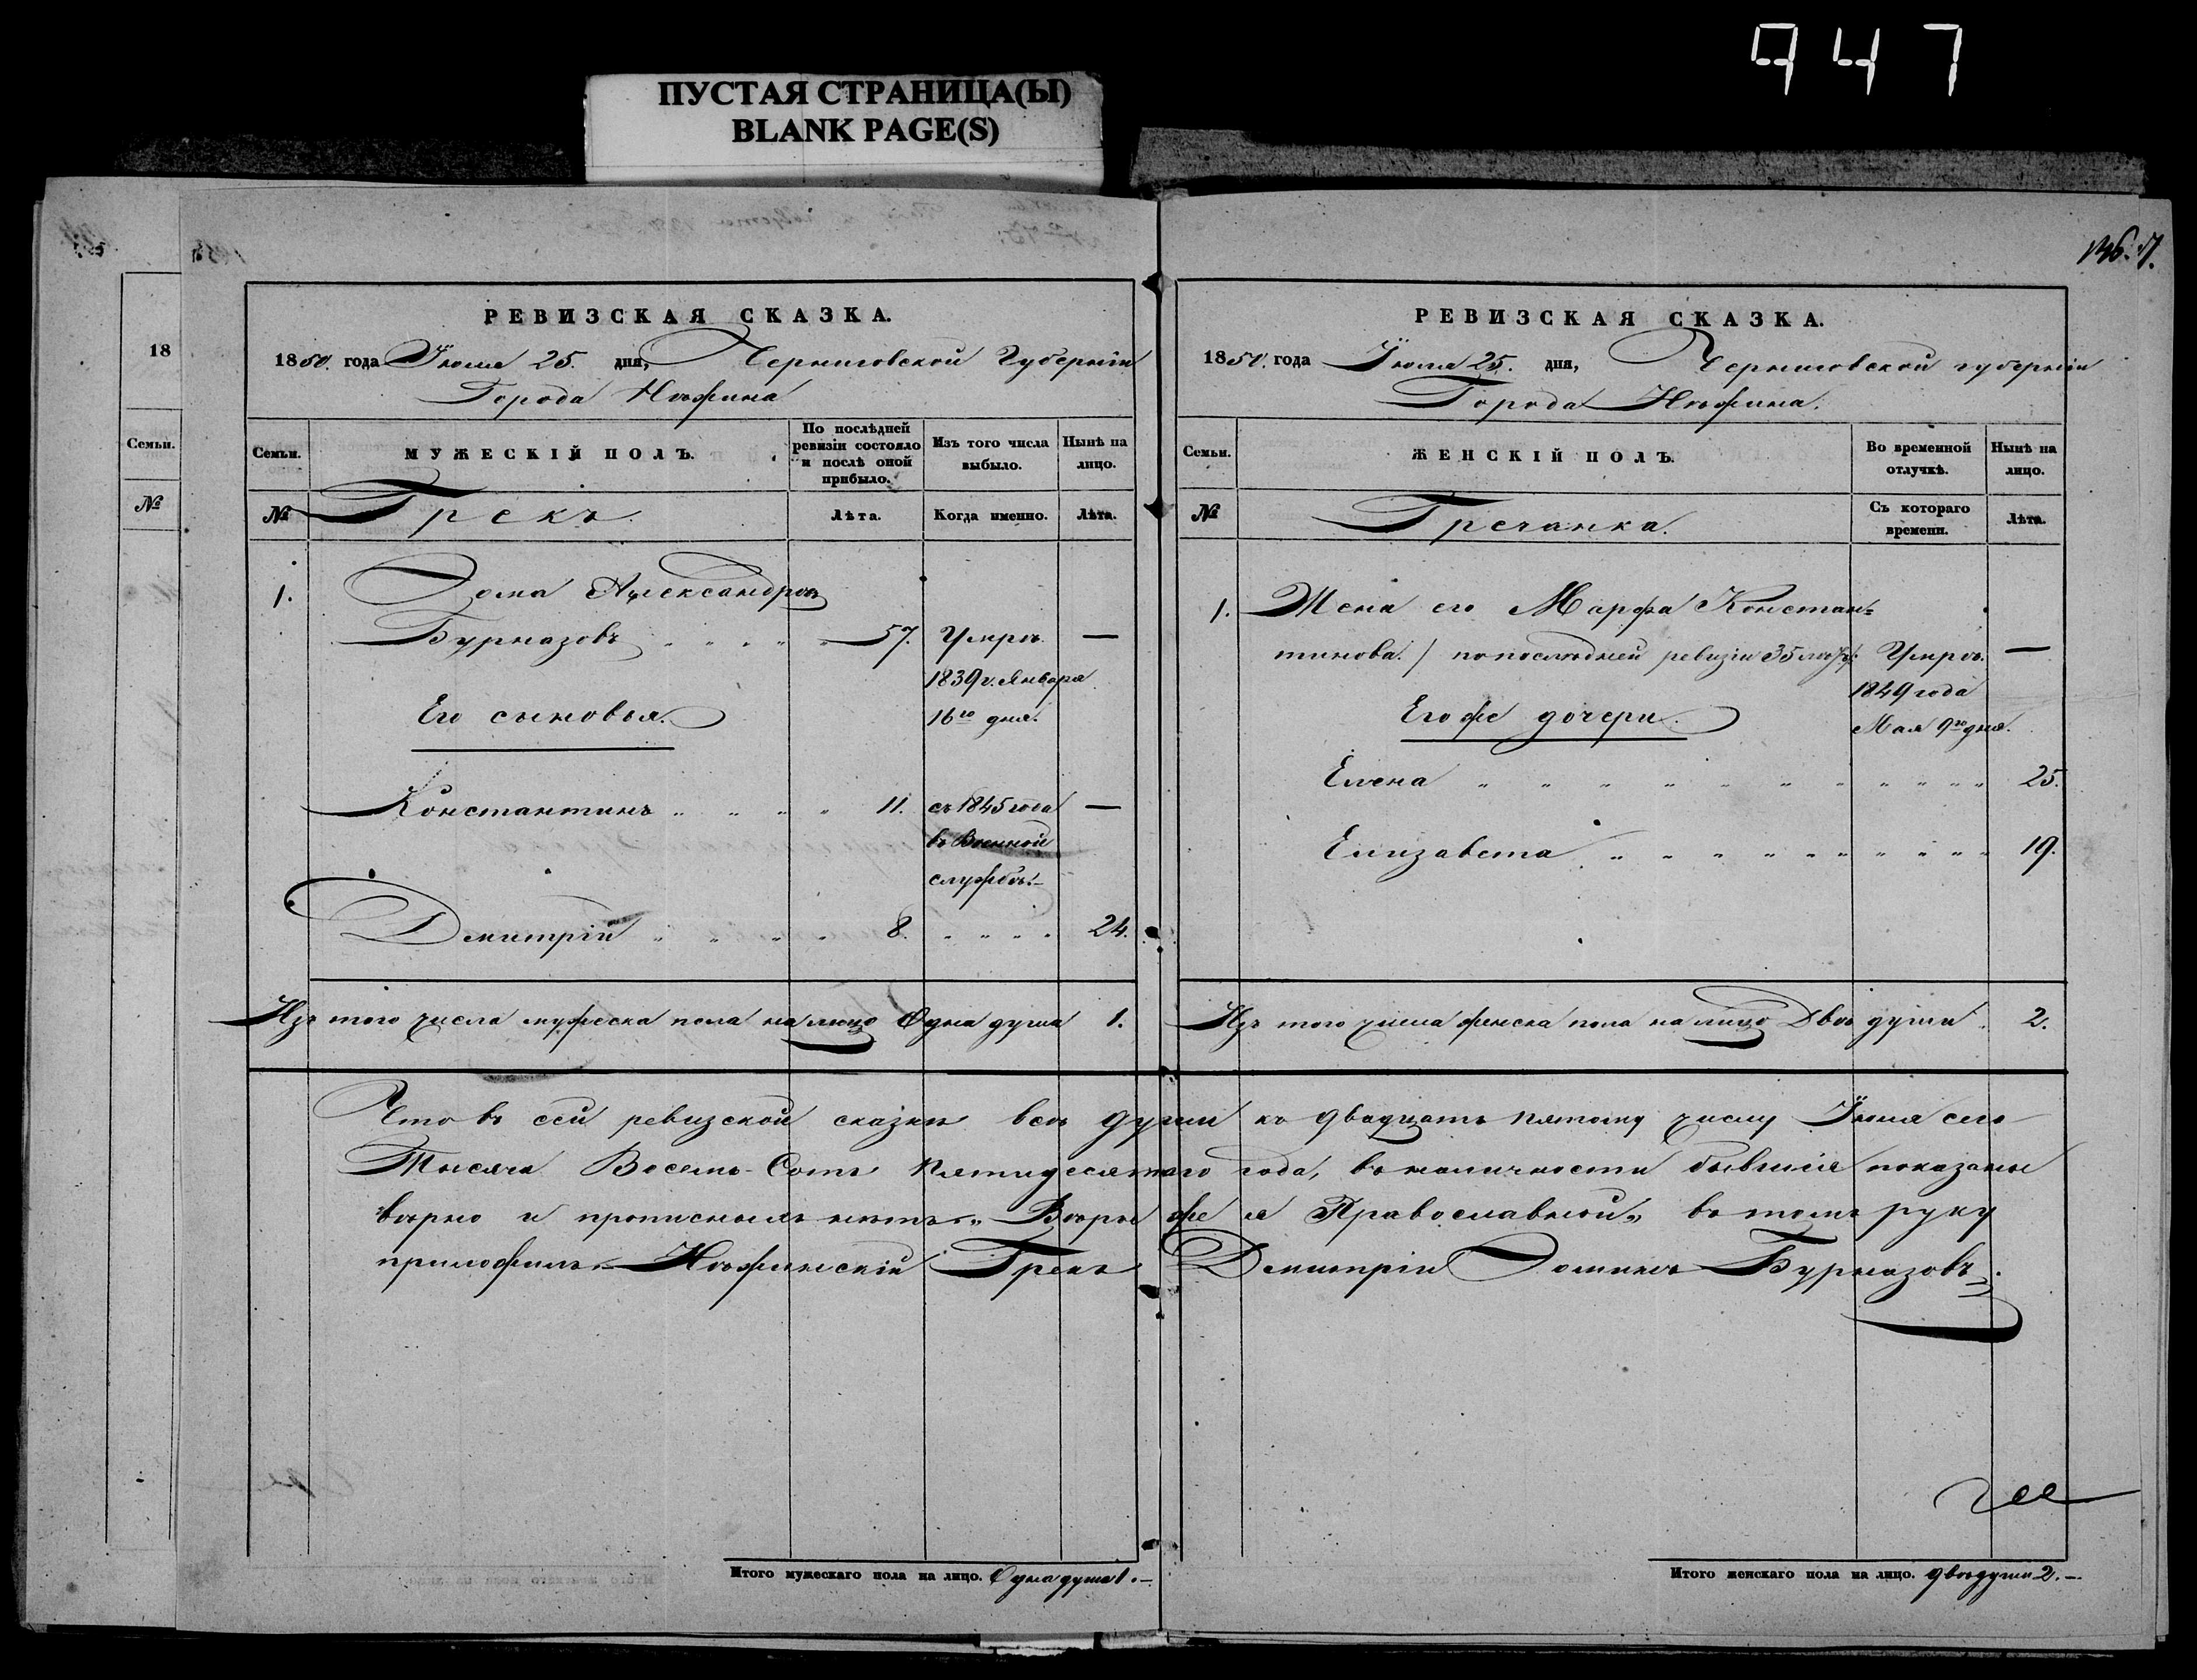 947
ПУСТАЯ СТРАНИЦА(Ы)
BLANK PAGE(S)
18
Семьи.
№
РЕВИЗСКАЯ СКАЗКА.
1850. года Іюля 25. дня, Черниговской Губерніи
Города Нѣжина
Семьи.
МУЖЕСКІЙ ПОЛЪ.
По послѣдней ревизіи состояло и послѣ оной прибыло.
Изъ того числа выбыло.
Нынѣ на лицо.
№
Грекъ.
Лѣта.
Когда именно.
Лѣта.
1. Дома Александровъ
Бурназовъ 57. Умре. —
1839 г. Января
Его сыновья. 16го дня.
Константинъ 11. съ 1845 года —
въ Военной
службѣ.
Димитрій 8. 24.
Изъ того числа мужеска пола на лицо Одна душа 1.
146. 7.
РЕВИЗСКАЯ СКАЗКА.
1850. года Іюля 25. дня, Черниговской губерніи
Города Нѣжина.
Семьи.
ЖЕНСКІЙ ПОЛЪ.
Во временной отлучкѣ.
Нынѣ на лицо.
№
Гречанка.
Съ котораго времени.
Лѣта.
1. Жена его Марфа Констан=
тинова / по послѣдней ревизіи 35 лѣтъ Умре. —
1849 года
Его же дочери. Мая 9го дня.
Елена 25.
Елизавета 19.
Изъ того числа женска пола на лицо Двѣ души 2.
Что въ сей ревизской сказкѣ всѣ души къ двадцать пятому числу Іюля сего
Тысяча Восемь-Сотъ пятидесятаго года, въ наличности бывшіе показаны
вѣрно и прописныхъ нѣтъ. Вѣры же я Православной, въ томъ руку
приложилъ. Нѣжинскій Грекъ Димитрій Доминъ Бурназовъ.
Итого мужескаго пола на лицо. Одна душа 1.—
Итого женскаго пола на лицо. двѣ души 2.—